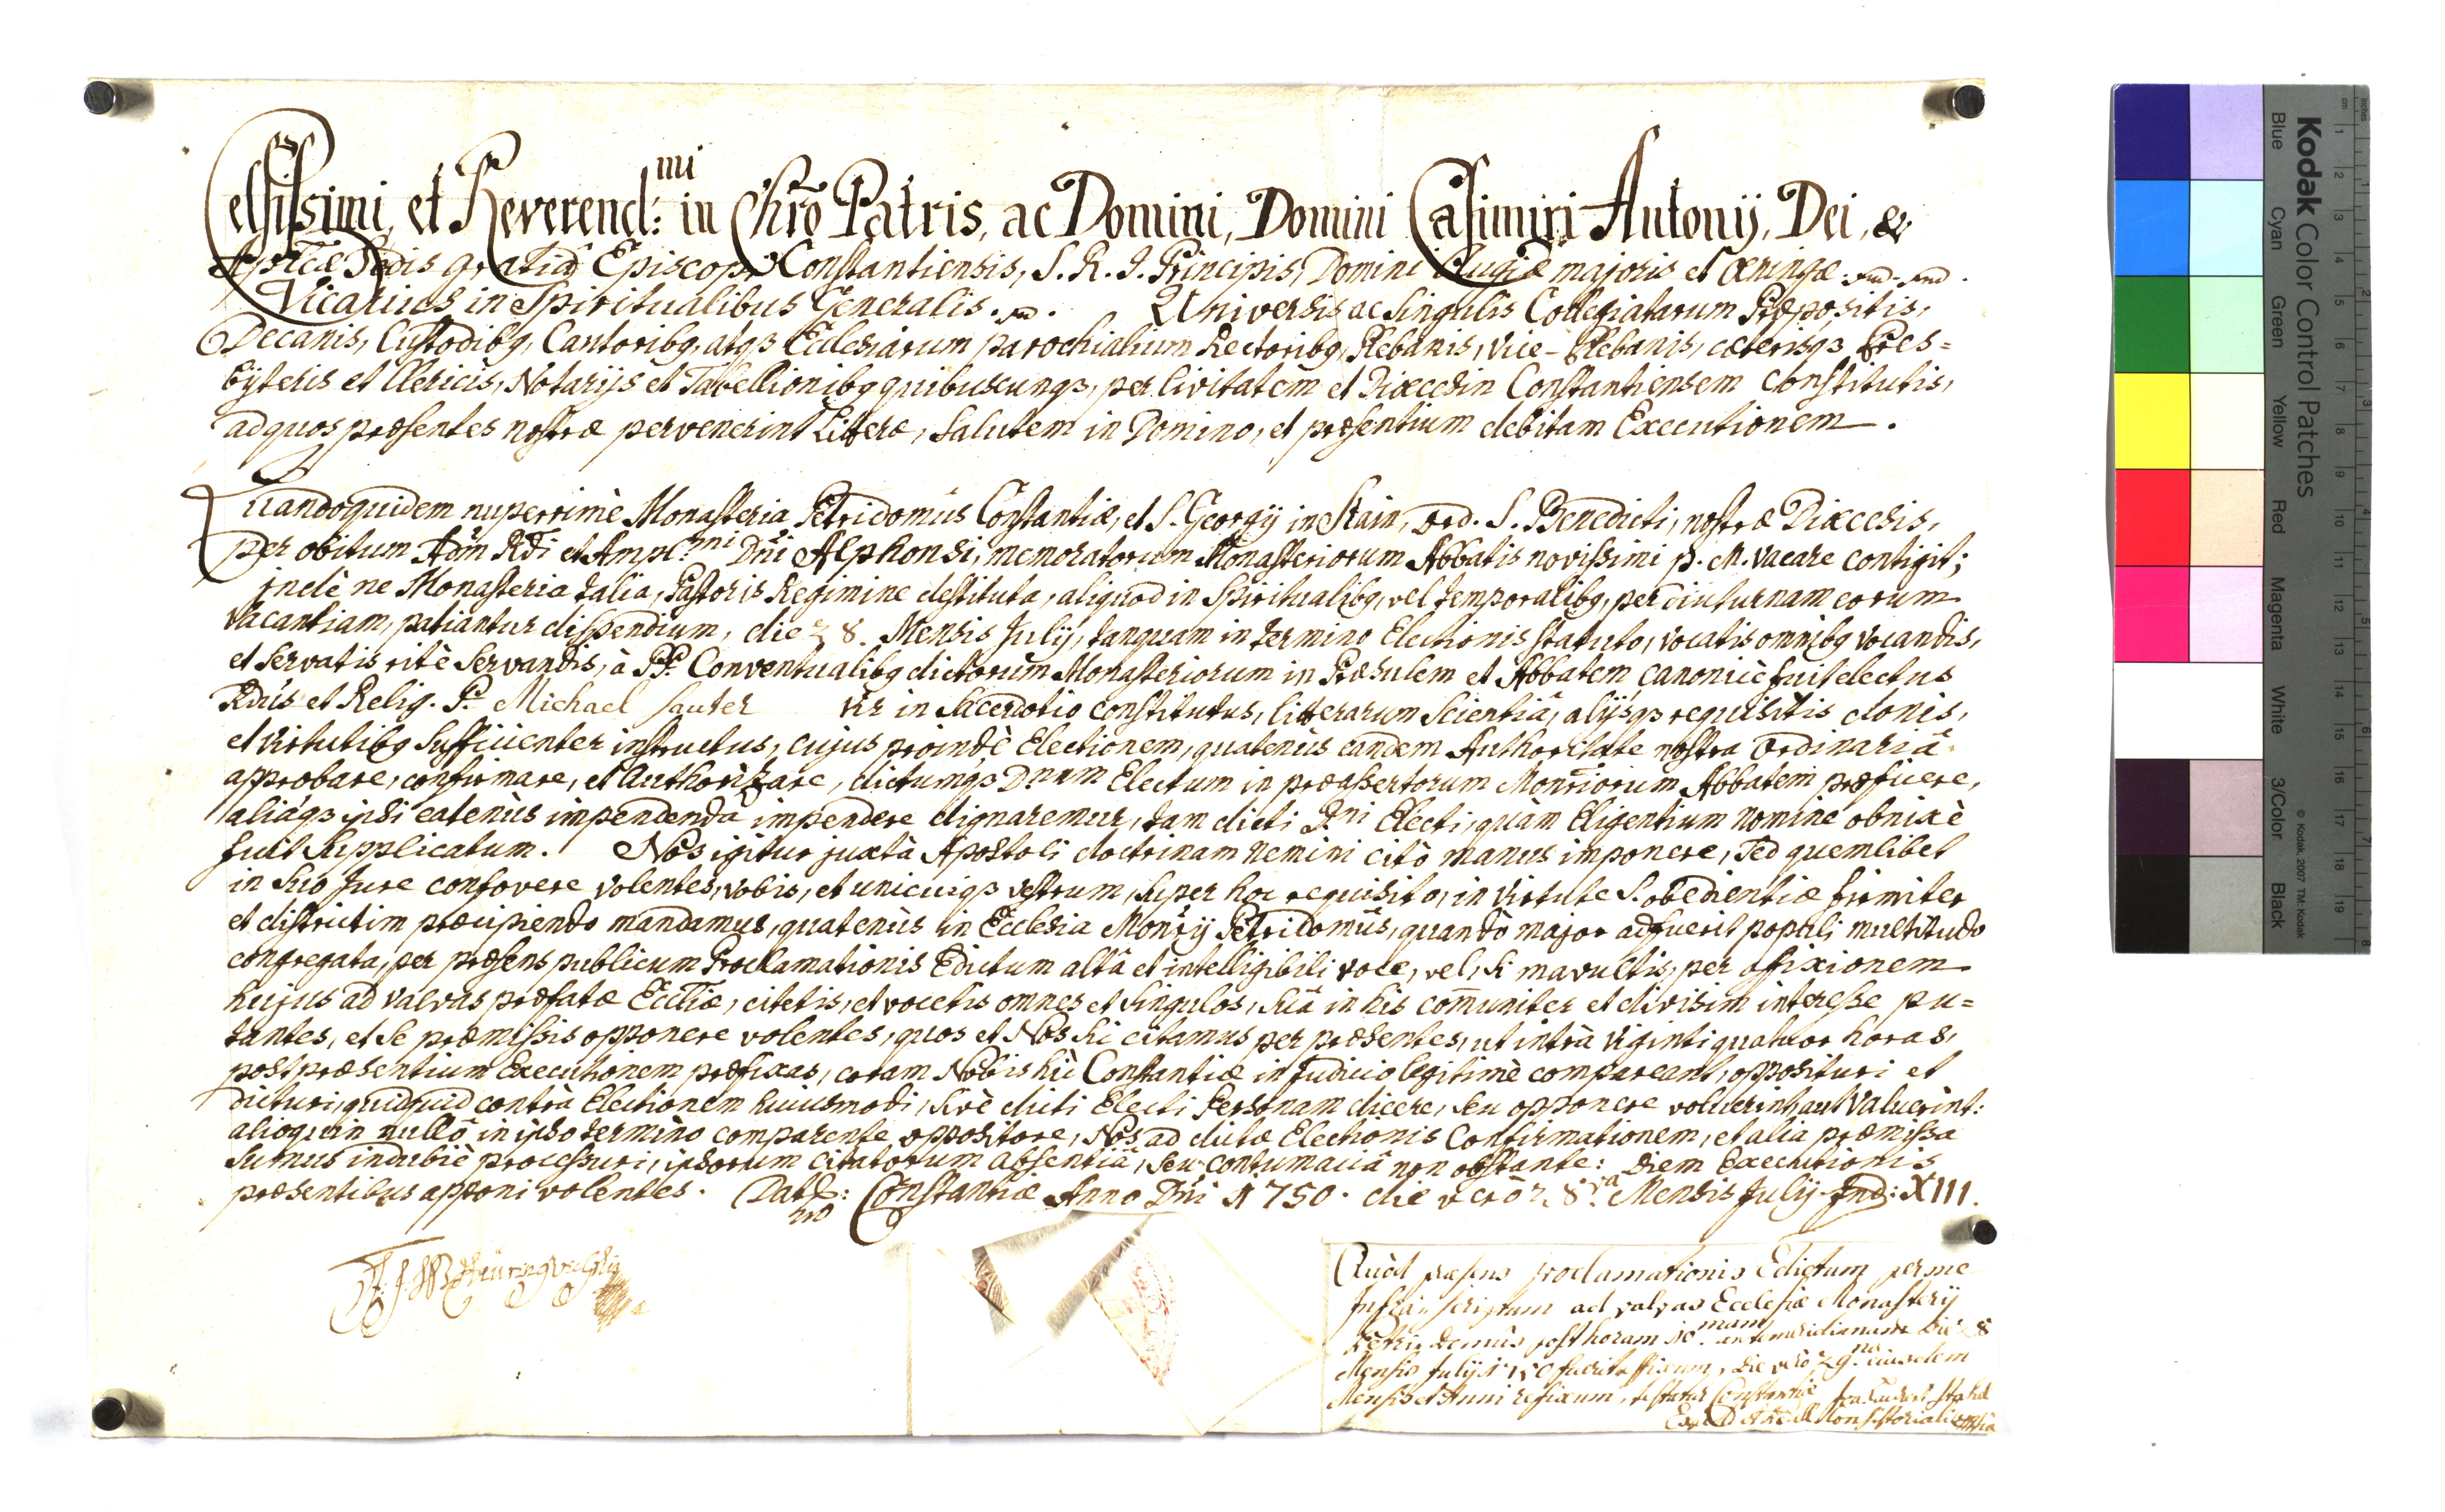 Celsissimi, et Reverend:mi in Chrō Patris, ac Domini, Domini Casimiri Antonij, Dei, &
Apl̄icæ Sedis gratiâ Episcopi Constantiensis, S. R. I. Principis, Domini Augiæ majoris et Oeningæ
Vicarius in Spiritualibus Generalis. Universis ac Singulis Collegiatarum Præpositis,
Decanis, Custodibq, Cantoribq, atqȝ Ecclesiarum parochialium Rectoribq, Plebanis, Vice-Plebanis, cæterisqȝ Pres=
byteris et Clericis, Notarijs et Tabellionibq quibuscunqȝ, per Civitatem et Diœcesin Constantiensem constitutis,
ad quos præsentes nostræ pervenerint Litteræ, Salutem in Domino, et præsentium debitam Executionem.
Quandoquidem nuperrimè Monasteria Petridomûs Constantiæ, et S. Georgij in Stain, Ord. S. Benedicti, nostræ Diœcesis,
per obitum Adm Rdi et Ampl.mi Dn̄i Alphonsi, memoratorum Monasteriorum Abbatis novissimi p. m. vacare contigit;
indè ne Monasteria talia, Pastoris Regimine destituta, aliquod in Spiritualibq, vel temporalibq, per diuturnam eorum
Vacantiam, patiantur dispendium, die 28. Mensis Julij, tanquam in termino Electionis statuto, vocatis omnibq vocandis,
et servatis ritè servandis, à PP. Conventualibq dictorum Monasteriorum in Præsulem et Abbatem canonicè fuit electus
Rdus et Relig. P. Michael Sauter Vir in Sacerdotio constitutus, litterarum Scientiâ, alijsqȝ requisitis donis,
et virtutibq sufficienter instructus, cujus proindè Electionem, quatenùs eandem Authoritate nostra Ordinariâ
approbare, confirmare, et Authorizare, dictumqȝ Dnum Electum in præassertorum Mon̄riorum Abbatem præficere,
aliáqȝ ipsi eatenùs impendenda impendere dignaremur, tam dicti D.ni Electi, quàm Eligentium nomine obnixè
fuit supplicatum. Nos igitur juxtà Apostoli doctrinam nemini citò manus imponere, sed quemlibet
in suo Jure confovere volentes, vobis, et unicuiqȝ vestrum, super hoc requisito, in virtute S. obedientiæ firmiter
et districtim præcipiendo mandamus, quatenùs in Ecclesia Mon̄rij Petridomûs, quandò major adfuerit populi multitudo
congregata, per præsens publicum Proclamationis Edictum altâ et intelligibili voce, vel, si mavultis, per affixionem
hujus ad valvas præfatæ Eccl̄iæ, citetis, et vocetis omnes et singulos, suâ in his com̄uniter et divisim interesse pu=
tantes, et se præmissis opponere volentes, quos et Nos sic citamus per præsentes, ut intrà viginti quatuor horas,
post præsentium Executionem præfixas, coram Nobis hìc Constantiæ in Judicio legitimè compareant, opposituri et
dicturi, quidquid contrà Electionem huiusmodi, sivè dicti Electi Personam dicere, seu opponere voluerint, aut valuerint:
alioquin nullo in ipso termino comparente oppositore, Nos ad dictæ Electionis Confirmationem, et alia præmissa
sumus indubiè processuri, ipsorum citatorum absentiâ, seu contumaciâ non obstante: Diem Executionis
præsentibus apponi volentes. Dat: Constantiæ Anno Dn̄i 1750. die verò 28va Mensis Julij. Ind: XIII.
Quòd præsens proclamationis Edictum per me
Infrà scriptum ad valvas Ecclesiæ Monasterij
Petri Domûs post horam 10mam antemeridianam die 28
Mensis Julij 1750 fuerit affixum, die verò 29na eiusdem
Mensis et Anni refixum, testatur Constantiæ